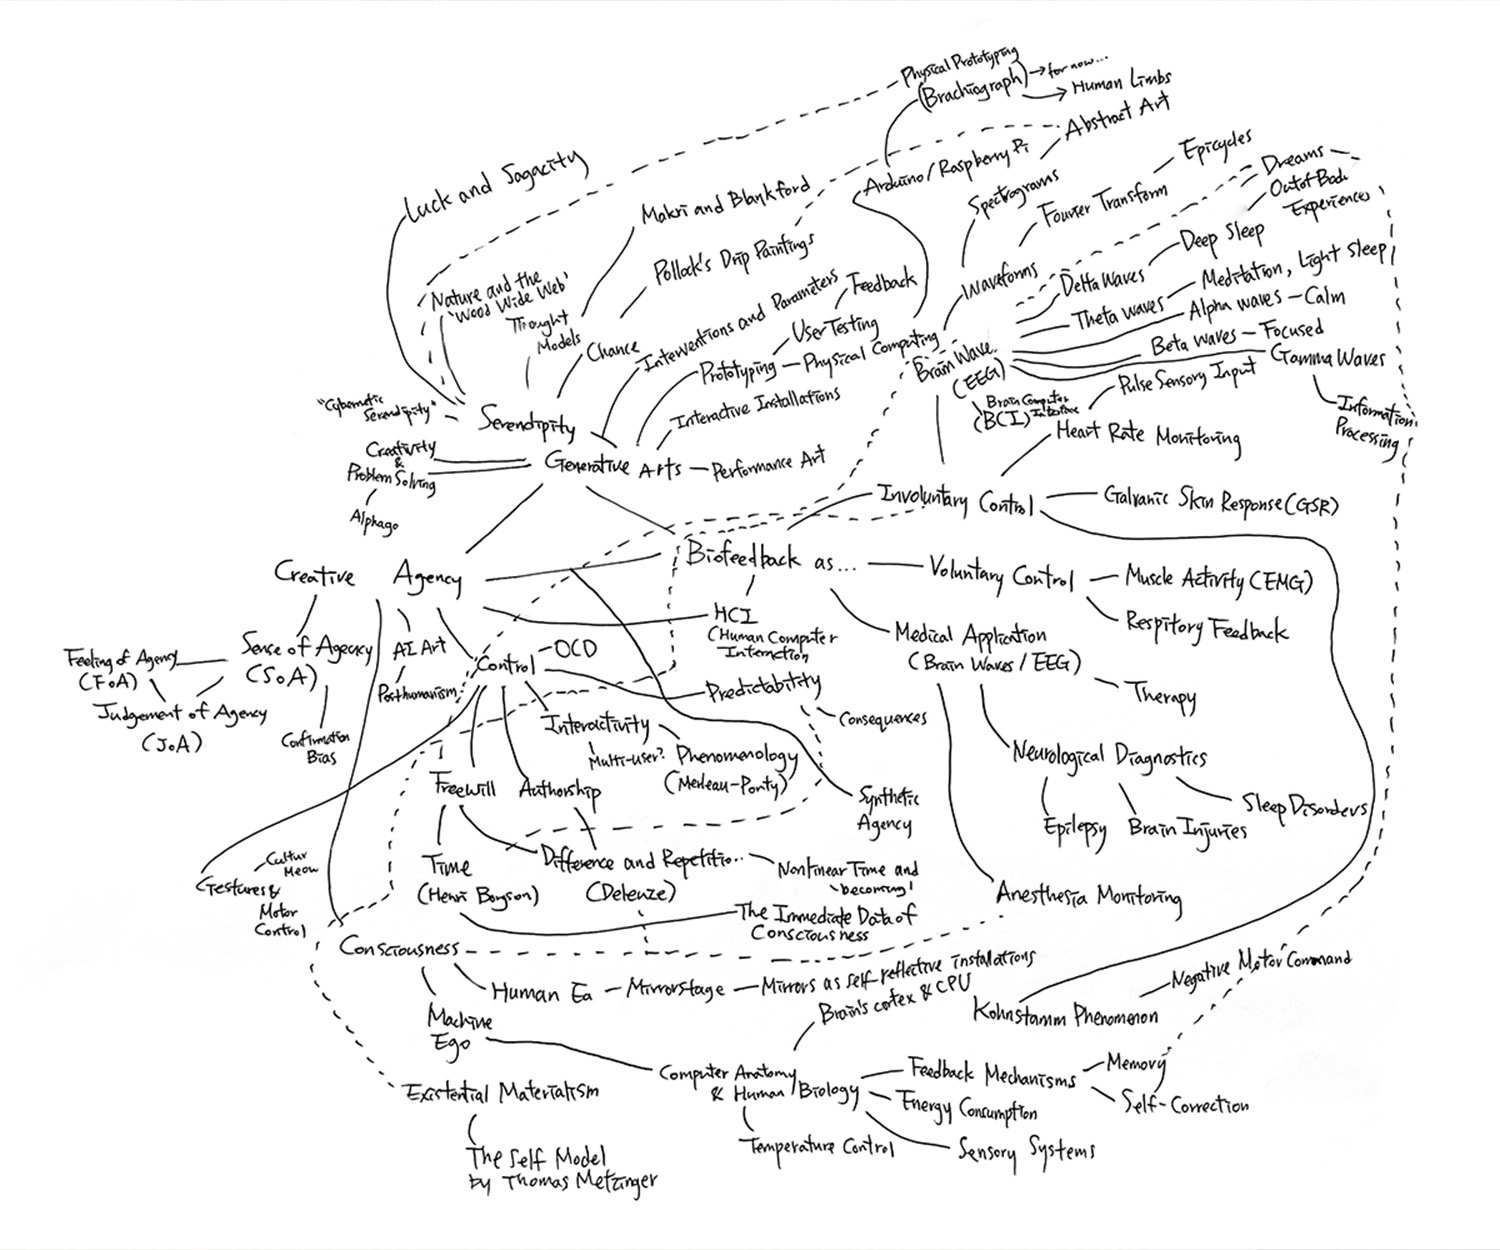 Physical Prototyping
(Brachiograph)
for now...
Human Limbs
Abstract Art
Luck and Sagacity
Makri and Blankford
Arduino/Raspberry Pi
Epicycles
Spectrograms
Fourier Transform
Dreams
Out of Body
Experiences
Nature and the
'Wood Wide Web'
Thought
Models
Pollock's Drip Paintings
Chance
Interventions and Parameters
Feedback
User Testing
Prototyping
Physical Computing
Waveforms
Delta Waves
Deep Sleep
Theta Waves
Meditation, Light Sleep
Alpha waves
Calm
Beta waves
Focused
Gamma Waves
Information
Processing
Brain Wave
(EEG)
Brain Computer
(BCI) Interface
Pulse Sensory Input
Heart Rate Monitoring
"Cybernetic
Serendipity"
Serendipity
Interactive Installations
Creativity
&
Problem Solving
Alphago
Generative Arts
Performance Art
Involuntary Control
Galvanic Skin Response (GSR)
Creative
Agency
Biofeedback as...
Voluntary Control
Muscle Activity (EMG)
Respitory Feedback
HCI
(Human Computer
Interaction
Medical Application
(Brain Waves/EEG)
Therapy
Feeling of Agency
(FoA)
Sense of Agency
(SoA)
Judgement of Agency
(JoA)
Confirmation
Bias
AI Art
Posthumanism
Control
OCD
Predictability
Consequences
Interactivity
Multi-user?
Phenomenology
(Merleau-Ponty)
Neurological Diagnostics
Epilepsy
Brain Injuries
Sleep Disorders
Freewill
Authorship
Synthetic
Agency
Cultur
Meow
Gestures &
Motor
Control
Time
(Henri Bergson)
Difference and Repetitio..
(Deleuze)
Nonlinear Time and
'becoming'
The Immediate Data of
Consciousness
Anesthesia Monitoring
Consciousness
Human Ea
Mirrorstage
Mirrors as self-reflective installations
Machine
Ego
Brain's cortex & CPU
Kohnstamm Phenomenon
Negative Motor Command
Existential Materialism
The Self Model
by Thomas Metzinger
Computer Anatomy
& Human/Biology
Feedback Mechanisms
Memory
Self-Correction
Energy Consumption
Temperature Control
Sensory Systems